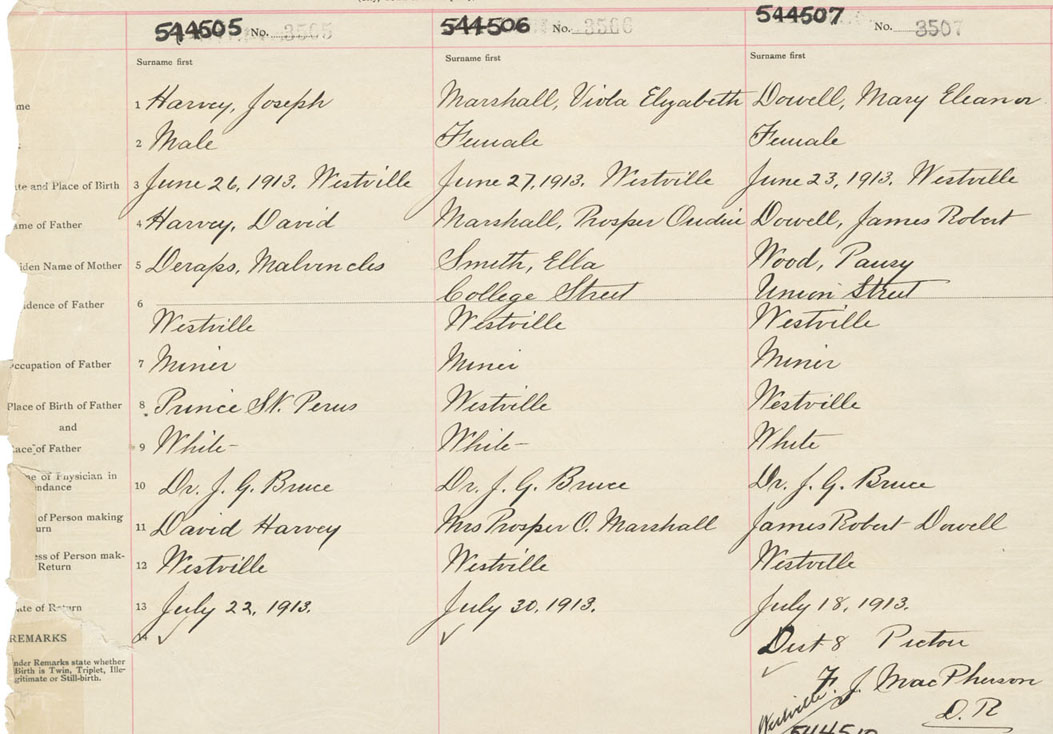 544505 No. 3505
544506 No. 3506
544507 No. 3507
Surname first Surname first Surname first
me 1 Harvey, Joseph Marshall, Viola Elizabeth Dowell, Mary Eleanor
2 Male Female Female
te and Place of Birth 3 June 26, 1913. Westville June 27, 1913. Westville June 23, 1913. Westville
ame of Father 4 Harvey, David Marshall, Prosper Dowell, James Robert
iden Name of Mother 5 Deraps, Smith, Ella Wood, Pansy
College Street Union Street
idence of Father 6
Westville Westville Westville
Occupation of Father 7 Miner Miner Miner
Place of Birth of Father 8 Prince St. Westville Westville
and
ace of Father 9 White White White
e of Physician in
endance 10 Dr. J. G. Bruce Dr. J. G. Bruce Dr. J. G. Bruce
of Person making
urn 11 David Harvey Mrs Prosper O. Marshall James Robert Dowell
ess of Person mak-
Return 12 Westville Westville Westville
ate of Return 13 July 22, 1913. July 30, 1913. July 18, 1913.
REMARKS 14 Dist 8 Pictou
nder Remarks state whether
Birth is Twin, Triplet, Ille-
gitimate or Still-birth.
F. J. MacPherson
Westville D. R